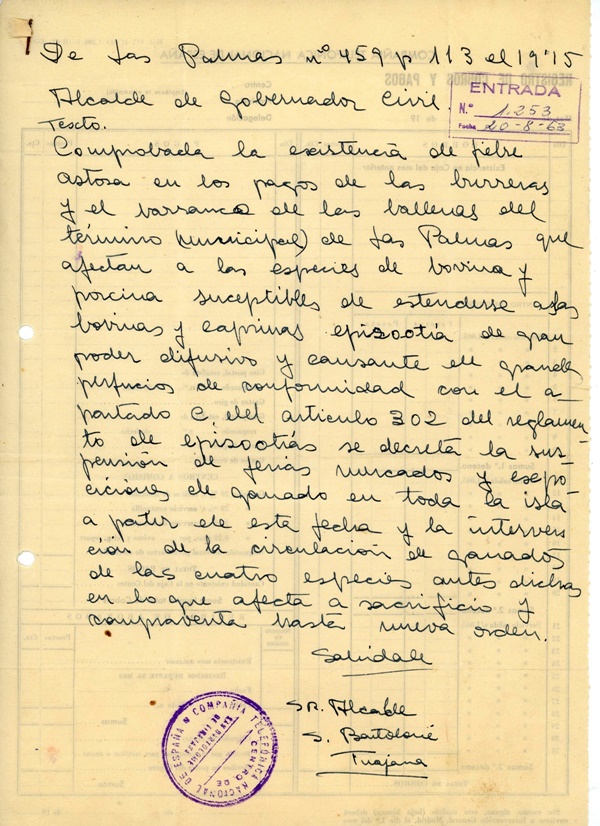 De Las Palmas nº 459 p 113 el 19'15
ENTRADA
N.º 1.253
Fecha 20-8-63
Alcalde de Gobernador Civil.
Texto.
Comprobada la existencia de fiebre
astosa en los pagos de las burreras
y el barranco de las ballenas del
término (municipal) de Las Palmas que
afectan a las especies de bovina y
porcina suceptibles de estenderse a las
bovinas y caprinas epizootia de gran
poder difusivo y causante de grandes
perfucios de conformidad con el a-
partado C del articulo 302 del reglamen-
to de epizootias se decreta la sus-
pensión de ferias mercados y expo-
ciciones de ganado en toda la isla
a patir de esta fecha y la interven-
ción de la circulación de ganados
de las cuatro especies antes dichas
en lo que afecta a sacrificio y
compraventa hasta nueva orden.
Salúdale
SR. Alcalde
S. Bartolomé
Tirajana
COMPAÑIA TELEFÓNICA NACIONAL DE ESPAÑA
CENTRO DE